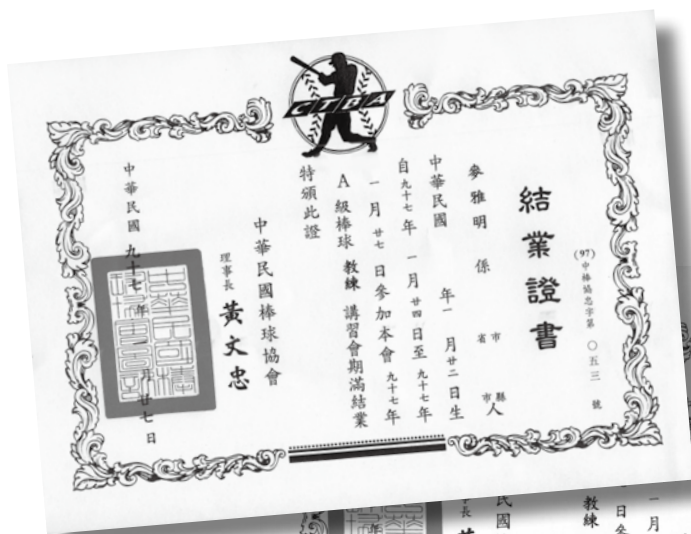 CTBA
結業證書
(97)中棒協忠字第〇五三號
麥雅明 係 省市 縣市人
中華民國 年一月廿二日生
自九十七年一月廿四日至九十七年
一月廿七日參加本會九十七年
A級棒球教練講習會期滿結業
特頒此證
中華民國棒球協會
理事長 黃文忠
中華民國九十七年一月廿七日
長
民國
教練
日參
一月